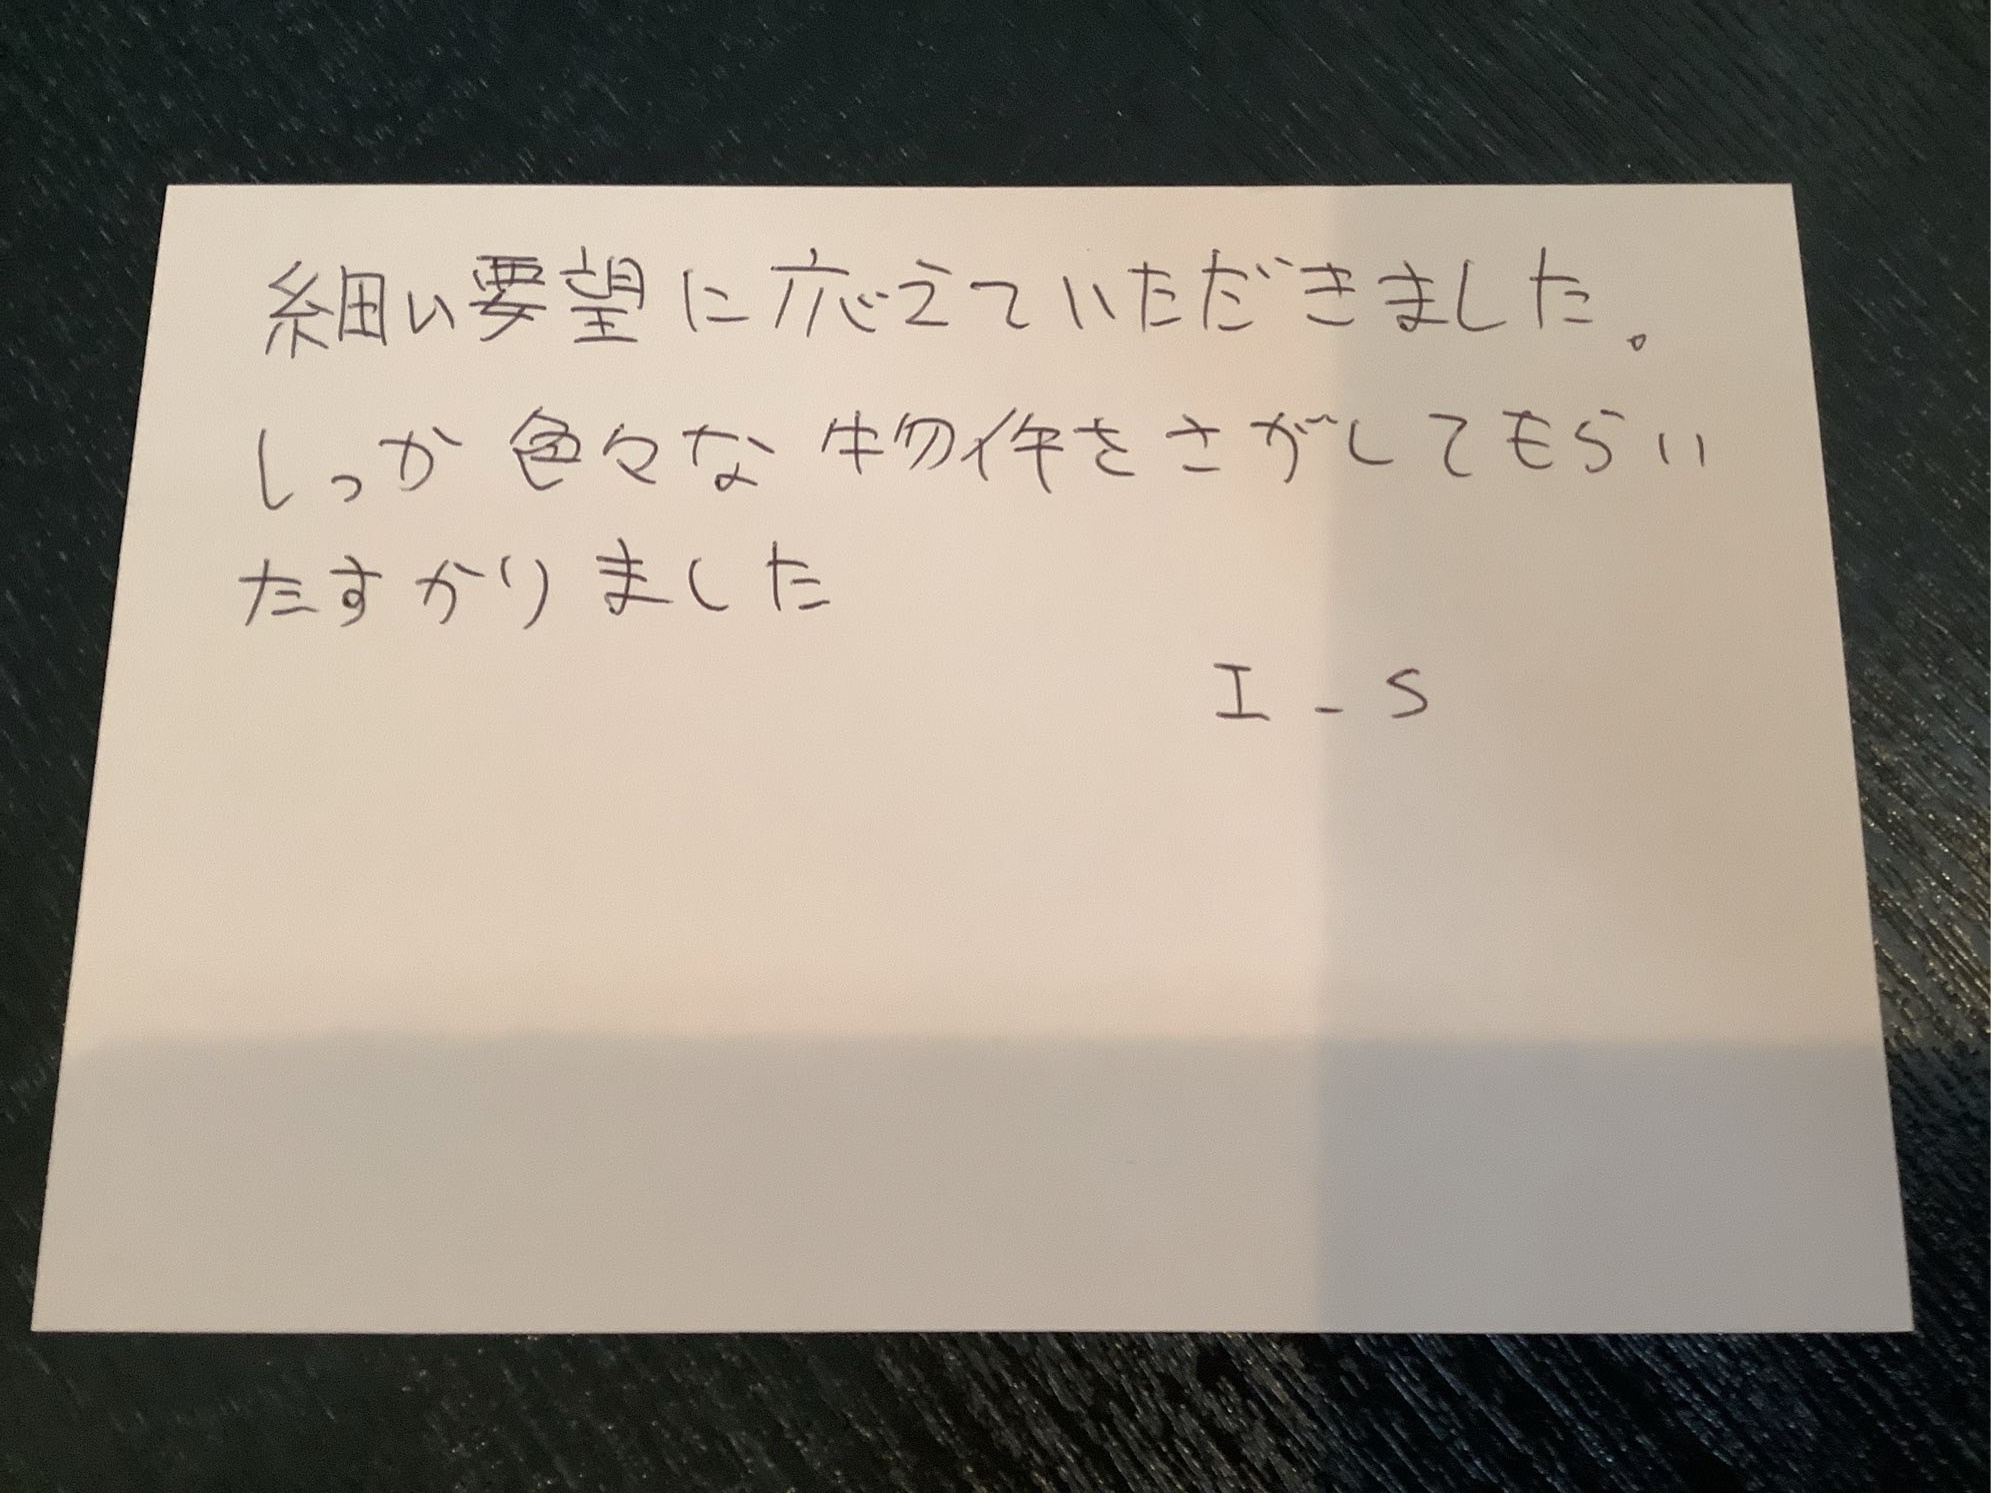 細い要望に応えていただきました。
しっか色々な物件をさがしてもらい
たすかりました
I - S